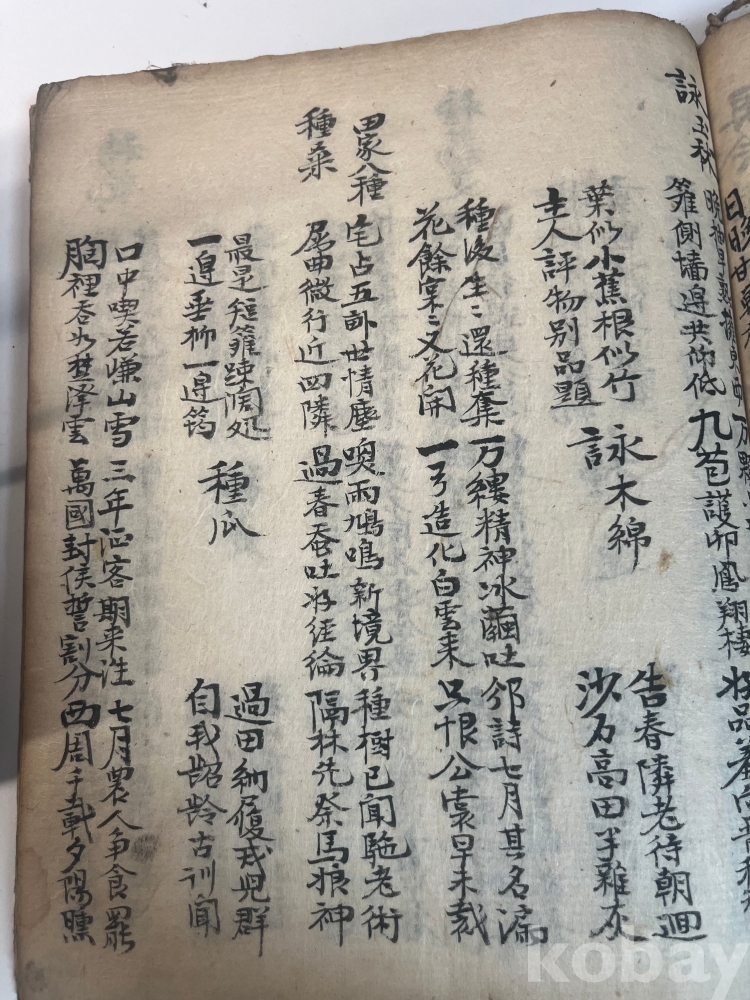 詠玉秫
籬側墻邊共仰低 九苞護卵鳳翔棲
葉似小蕉根似竹
主人評物別品題
詠木綿
告春隣老待朝廻
沙石高田半雜灰
種後生〻還種奪 万縷精神冰繭吐 邠詩七月其名漏
花餘宲〻又花開 一弓造化白雲来 只恨公袁早未裁
田家八種
種桑
宅占五畝世情塵 喚雨鳩鳴新境界 種樹已聞馳老術
曲微行近四隣 過春蚕吐好経綸 隔林先祭馬狼神
最是短籬踈濶处
一邉垂柳一邉筠
種瓜
過田納履戒兒群
自我髫齡古訓聞
口中喫若嚥山雪 三年客期来往 七月農人争食罷
胸裡吞如楚澤雲 萬國封侯誓割分 西周千載夕陽曛
kobay